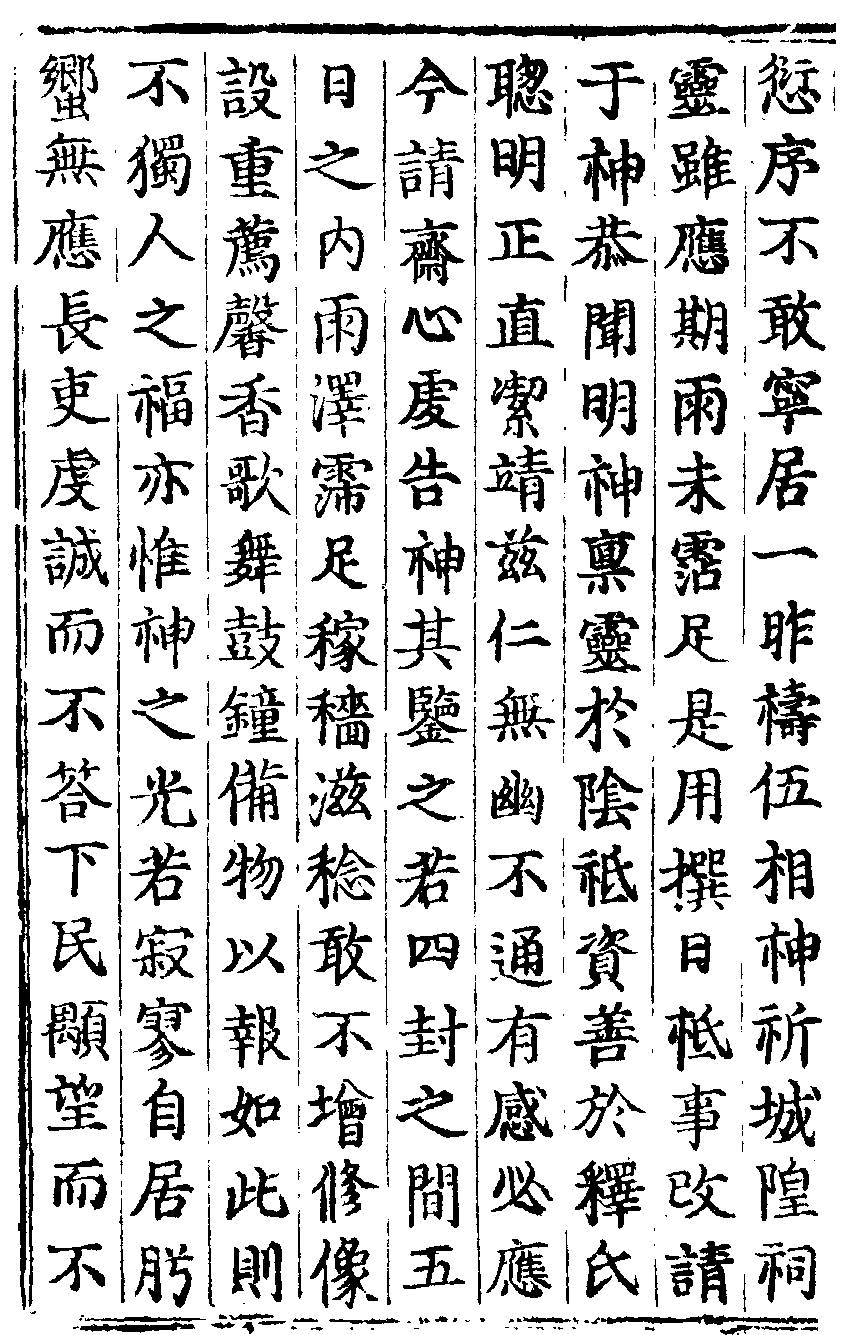 愆序不敢寧居一昨禱伍相神祈城隍祠
靈雖應期雨未霑足是用撰日祗事改請
于神恭聞明神稟靈於陰祗資善於釋氏
聰明正直潔靖茲仁無幽不通有感必應
今請齋心虔告神其鑒之若四封之間五
日之內雨澤霈足稼穡滋稔敢不增修像
設重薦馨香歌舞鼓鐘備物以報如此則
不獨人之福亦惟神之光若寂寥自居肸
蠁無應長吏虔誠而不荅下民顒望而不